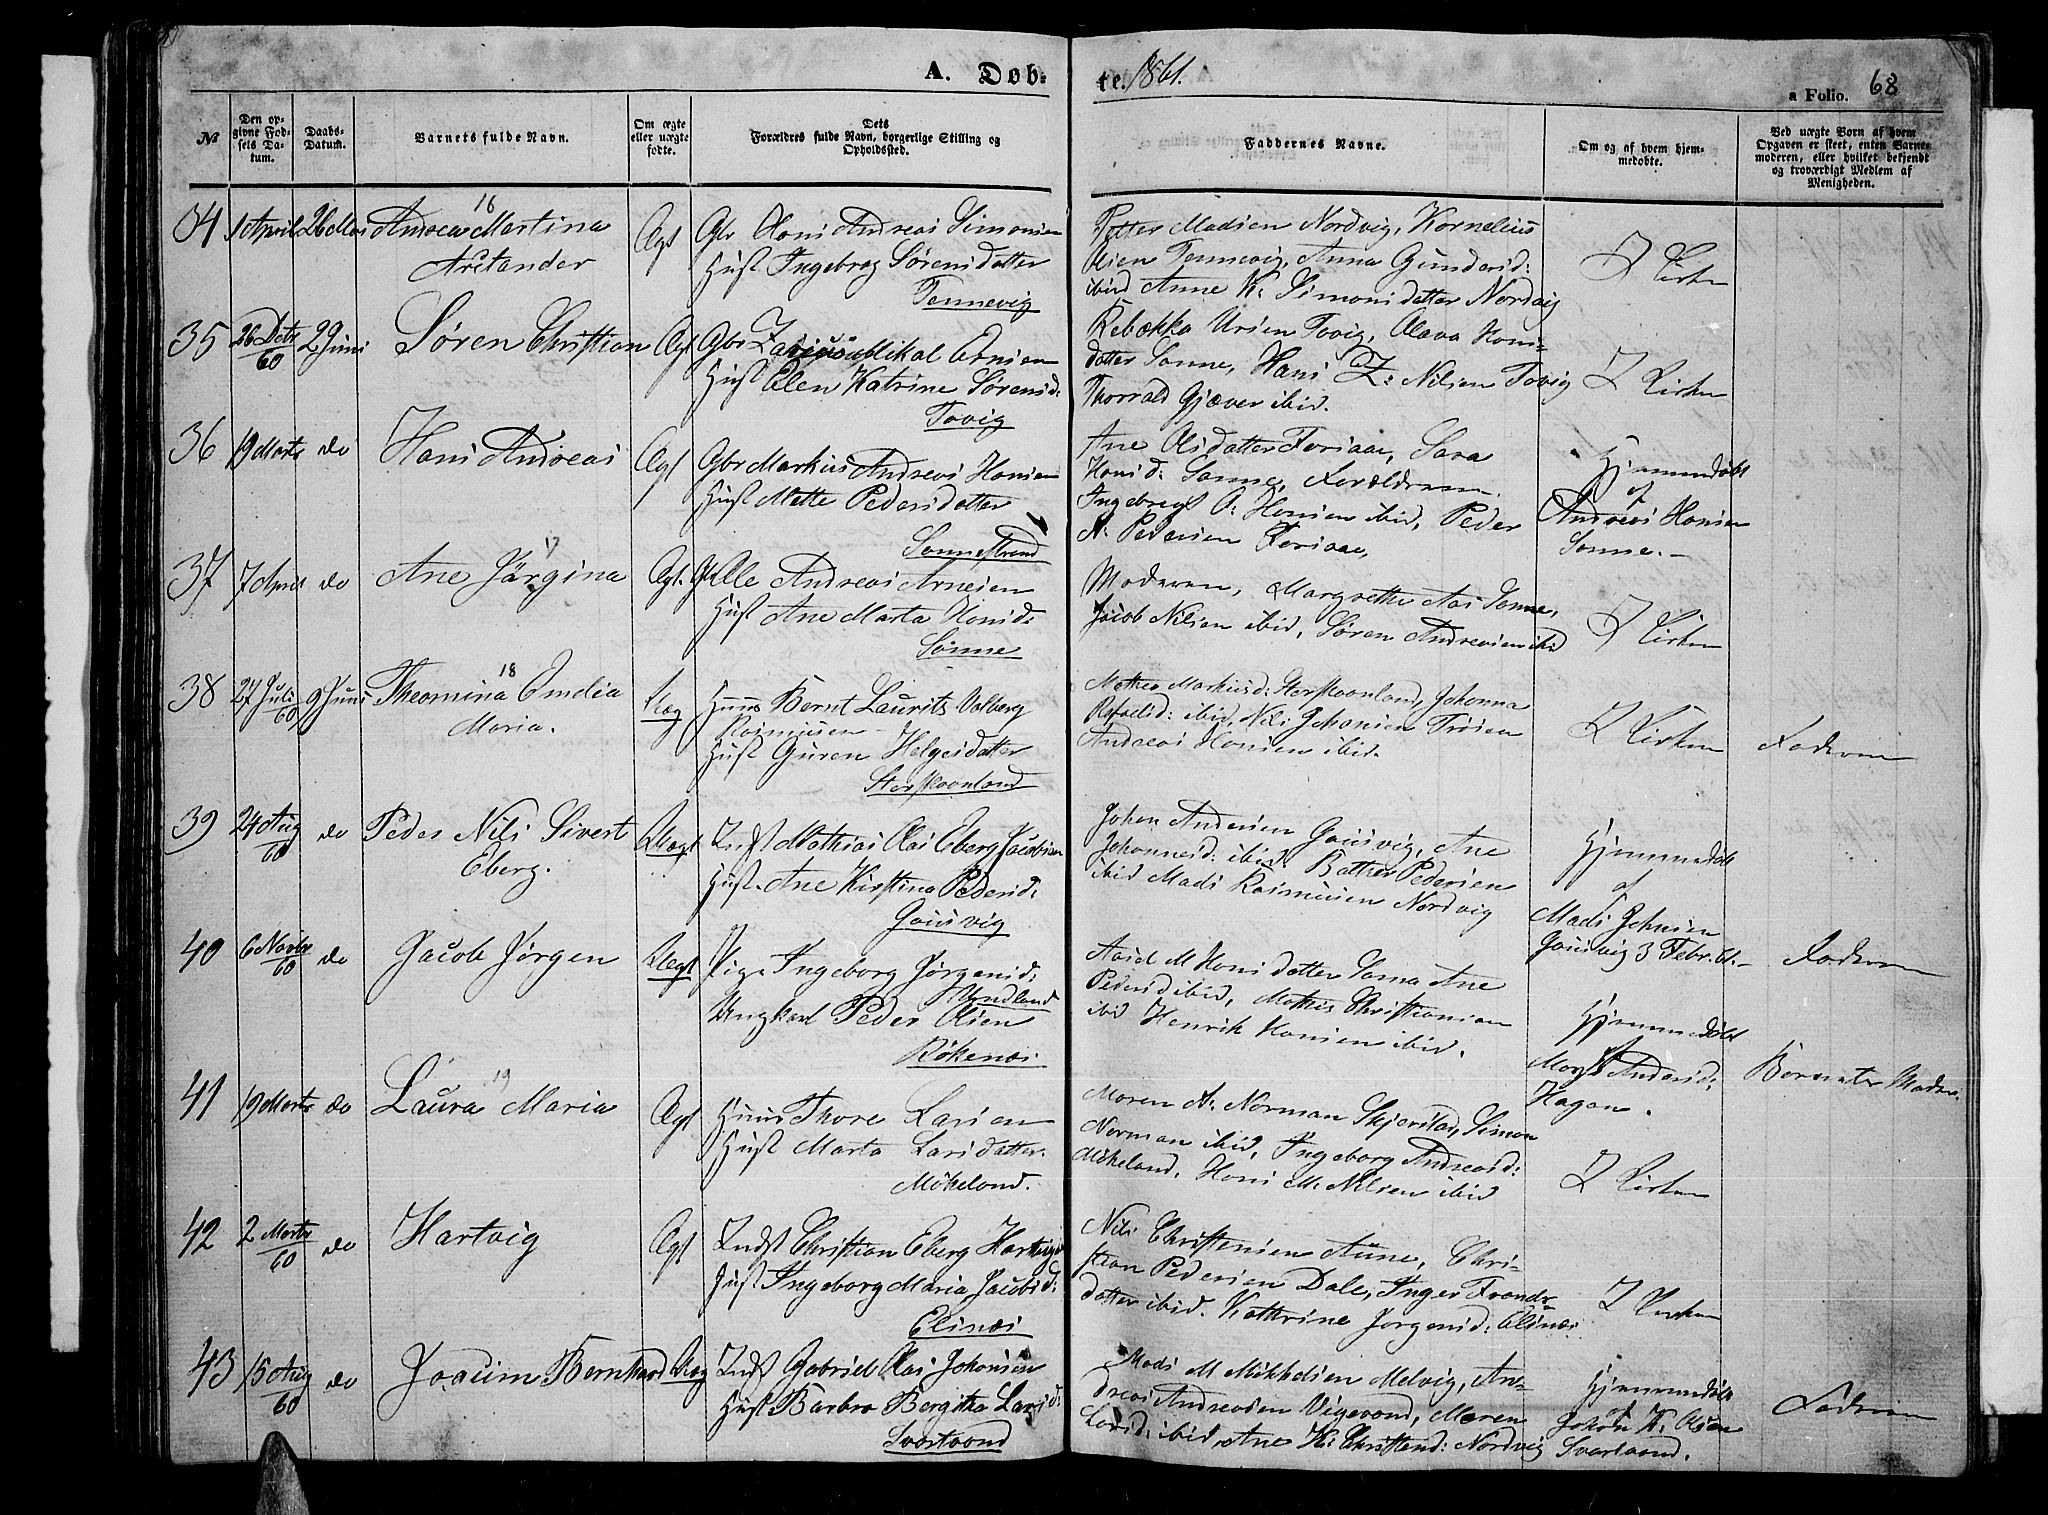 A. Døb-
te. 1861.
68
a Folio.
№
Den op-
givne Fød-
sels Da-
tum.
Daabs-
Datum.
Barnets fulde Navn.
Om ægte
eller uægte
fødte.
Dets
Forældres fulde Navn, borgerlige Stilling og
Opholdssted.
Faddernes Navne.
Om og af hvem hjem-
medøbte.
Ved uægte Børn af hvem
Opgaven er skeet, enten Barne-
moderen, eller hvilket bekjendt
og troværdigt Medlem af
Menigheden.
34 1 April 26 Mai
16
Andrea Martina
Arctander
Ægt
Gbr Hans Andreas Simonsen
Hust Ingebrog Sørensdatter
Tennevig
Petter Madsen Nordvig, Kornelius
Olsen Tennevig, Anna Gundersd:
ibid Anne K: Simonsdatter Nordvig
I Kirken
35 26 Decbr/60 2 Juni
Søren Christian
Ægt
Gbr Mikal Ernsen
Hust Elen Katrine Sørensd:
Tovig
Rebække Ursien Tovig, Olava Hans-
datter Sonne, Hans Z: Nilsen Tovig
Thorvald Gjæver ibid.
I Kirken
36 19 Marts do
Hans Andreas
Ægt
Gbr Markus Andreas Hansen
Hust Mette Pedersdatter
Sonnestrand
Ane Olsdatter Foriaae, Sara
Hansd: Sonne, Forældrene
Ingebregt O: Hansen ibid, Peder
A: Pedersen Foriaae,
Hjemmedøbt
af
Andreas Hansen
Sonne.-
37 7 April do
17
Ane Jørgina
Ægt.
Gbr Ole Andreas Arnesen
Hust Ane Marta Hansd:
Sonne
Moderen, Margrethe Aas Sonne,
Jacob Nilsen ibid, Søren Andreasen ibid
I Kirken
38 27 Juli/60 9 Juni
18
Theomina Emelia
Maria.
Uæg
Huus Bernt Laurits Valberg
Rasmusen
Hust Guren Helgesdatter
Storskoanland
Mathea Markusd: Storskoanland, Johanna
Rafaelsd: ibid, Nils Johansen Trøsen
Andreas Hansen ibid.
I Kirken
Faderen
39 24 Aug/60 do
Peder Nils Sivert
Eberg.
Uægt
Indst Mathias Olai Eberg Jacobsen
Hust. Ane Kirstina Pedersd:
Gausvig
Johan Andersen Gausvig, Ane
Johannesd: ibid Bather Pedersen
ibid Mads Rasmusen Nordvig
Hjemmedøbt
af
Mads Johnsen
Gausvig 3 Febr. 61.-
Faderen
40 6 Novbr/60 do
Jacob Jørgen
Uægt
Pige Ingeborg Jørgensd:
Myndland
Ungkarl Peder Olsen
Røkenes
M Hansdatter Sama Ane
Pedersd ibid, Mathis Christiansen
ibid Henrik Hansen ibid.
Hjemmedøbt
af
Andersd:
Hagan.
Barnets Moder.
41 19 Marts do
19
Laura Maria
Ægt
Huus Thore Larsen
Hust Marta Larsdatter
Møkeland.
Maren A: Norman Skjerstad, Simon
Norman ibid, Ingeborg Andreasd:
Møkeland, Hans M: Nilsen ibid
I Kirken
42 2 Marts/60 do
Hartvig
Ægt
Indst Christian Eberg Hartvigs
Hust Ingeborg Maria Jacobsd:
Elines
Nils Christensen Aune, Chri-
stian Pedersen Dale, Inger Frands-
datter ibid. Kathrine Jørgensd: Elines
I Kirken
43 15 Aug/60 do
Joacim Bernhard
Uæg
Indst Gabriel Olai Johansen
Hust Barbro Bergitha Larsd:
Svartvand
Mads M Mikkelsen Melvig, An-
dreas Andreasen Vigevand, Maren
Larsd: ibid, Ane K: Christend: Nordvig
Hjemmedøbt
af
Jakob K: Olsen
Svartvand.
Faderen